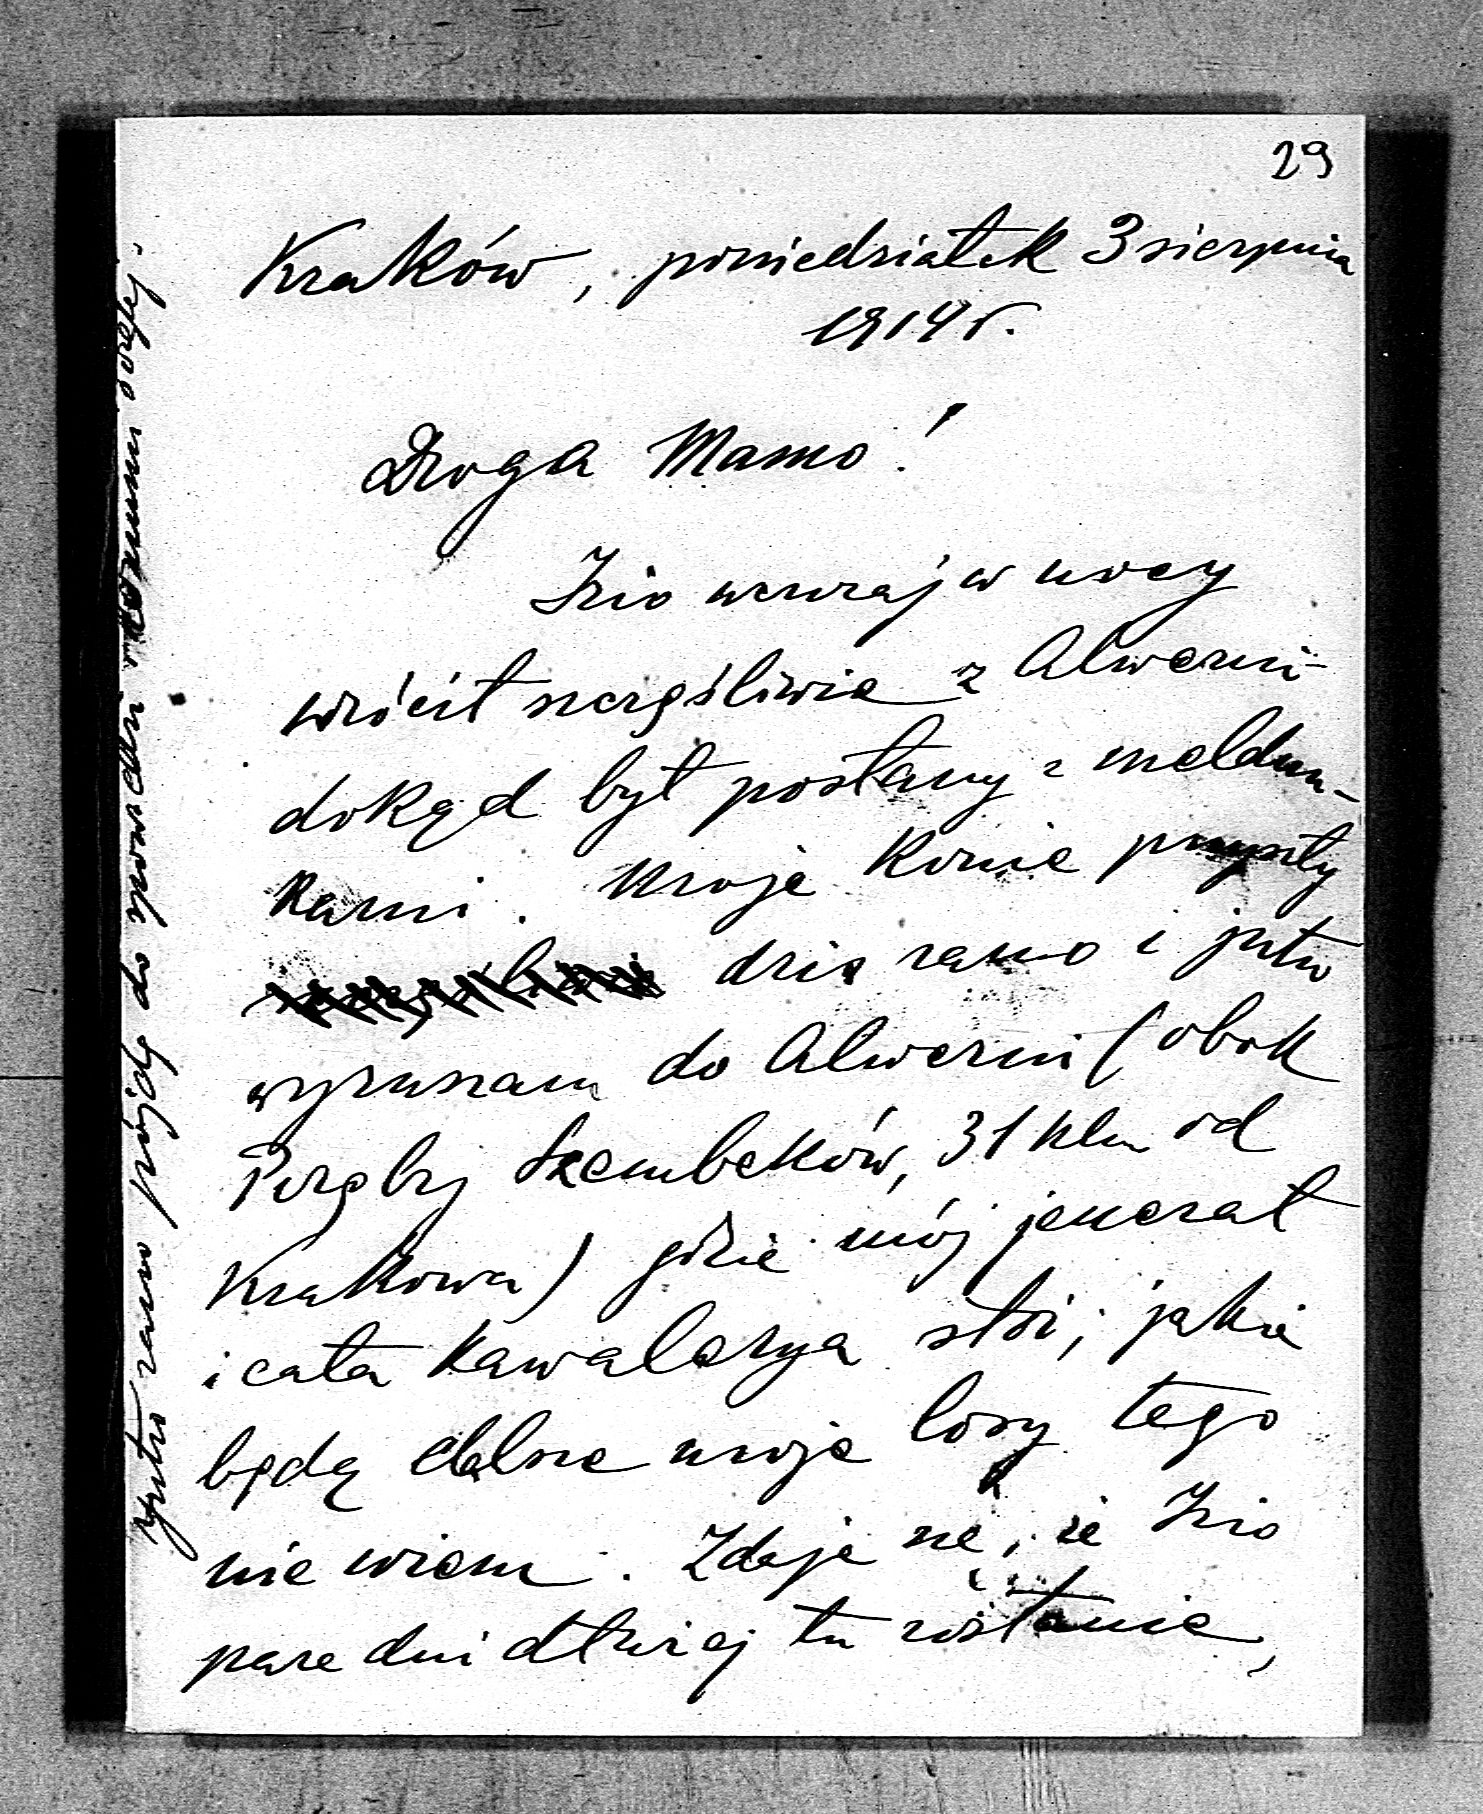 29
Kraków, poniedziałek 3 sierpnia
1914 r.
Droga Mamo!
Izio wczoraj w nocy
wrócił szczęśliwie z Alwerni
dokąd był posłany z meldun-
kami. Moje konie przyszły
dziś rano i jutro
wyruszam do Alwerni (obok
Poręby Szembeków, 31 klm od
Krakowa) gdzie mój jenerał
i cała kawalerya stoi; jakie
będą dalsze moje losy tego
nie wiem. Zdaje się, że Izio
parę dni dłużej tu zostanie,
Jutro rano pójdę do spowiedzi i komunii świętej.